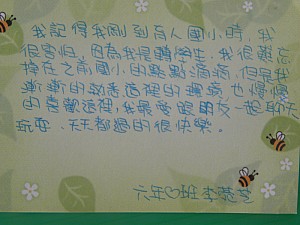 我記得我剛到育人國小時,我
很害怕,因為我是轉學生,我很難忘
掉在之前國小的點點滴滴,但是我
漸漸的熟悉這裡的環境,也慢慢
的喜歡這裡,我最愛跟朋友一起聊天
玩耍,天天都過的很快樂。
六年 班 李慧